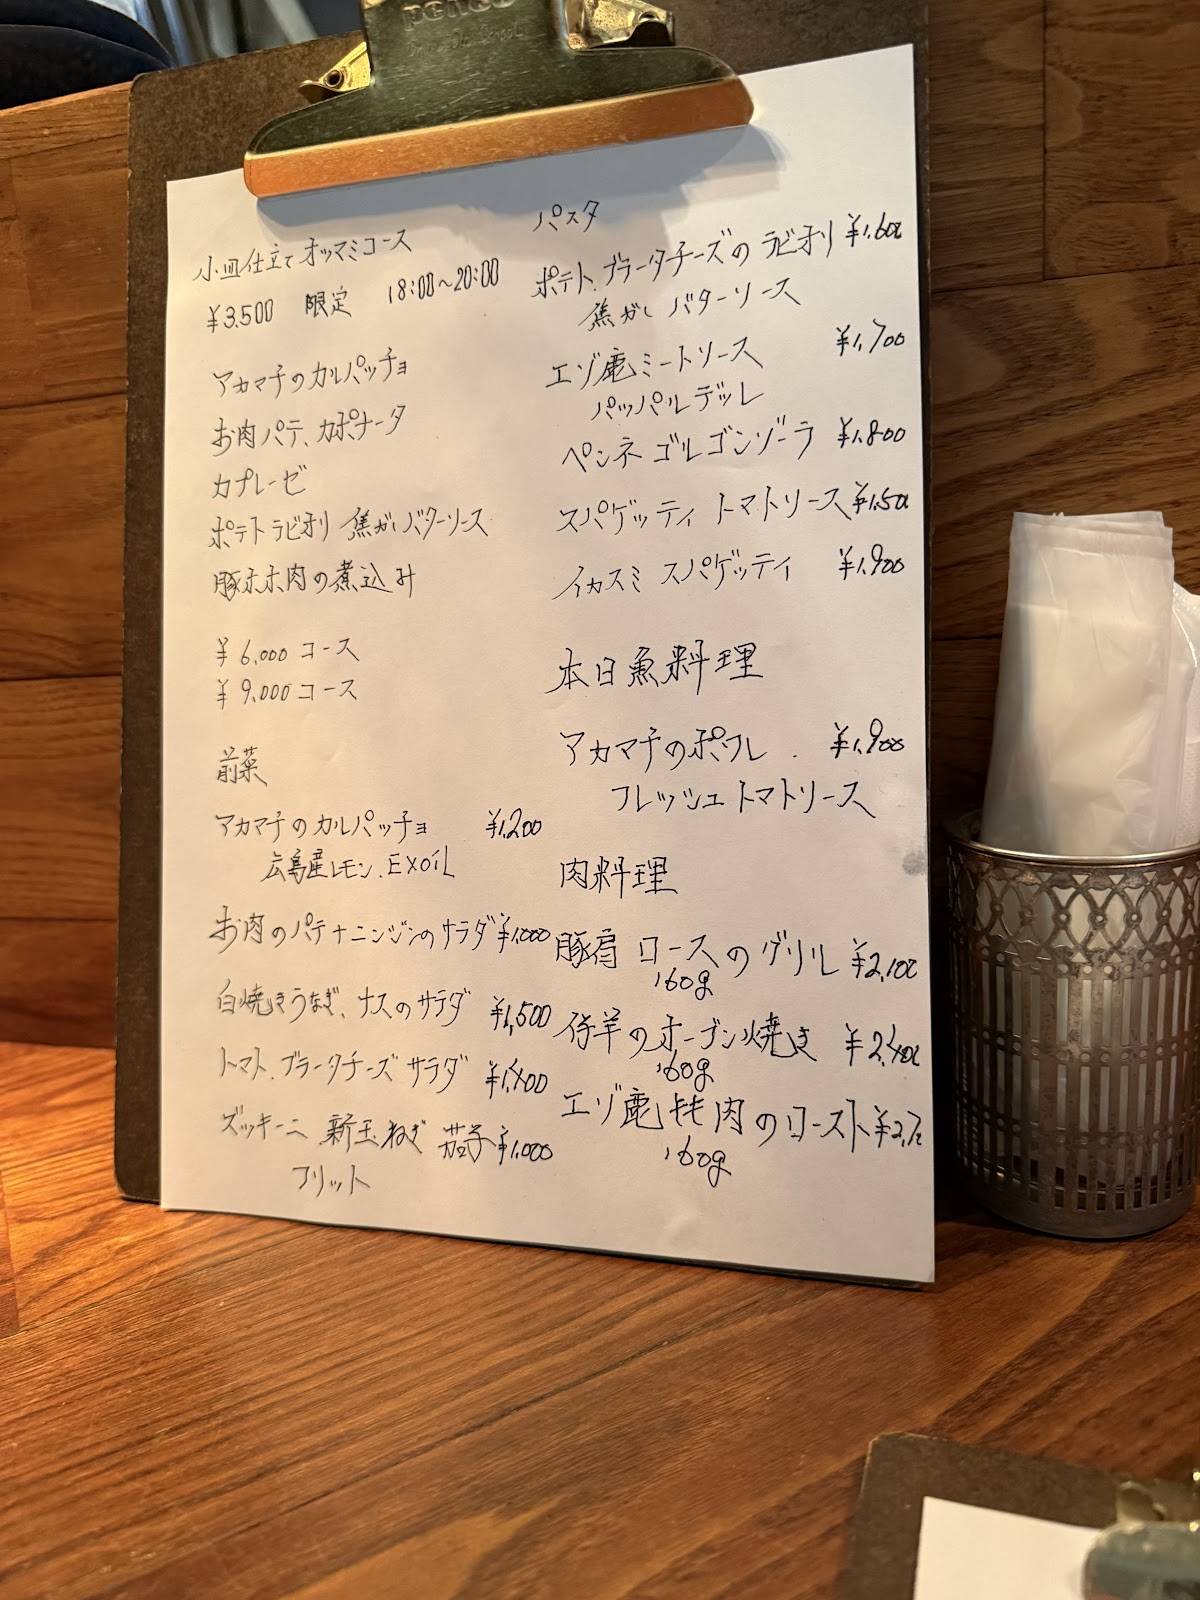 penco
小皿仕立て オツマミコース
¥3.500 限定 18:00〜20:00
アカマチのカルパッチョ
お肉パテ、カポナータ
カプレーゼ
ポテトラビオリ 焦がしバターソース
豚ホホ肉の煮込み
¥6,000コース
¥9,000コース
前菜
アカマチのカルパッチョ ¥1,200
広島産レモン.EXOIL
お肉のパテ ニンジンのサラダ ¥1,000
白焼きうなぎ、ナスのサラダ ¥1,500
トマト.ブラータチーズ サラダ ¥1,400
ズッキーニ 新玉ねぎ 茄子 ¥1,000
フリット
パスタ
ポテト.ブラータチーズの ラビオリ ¥1,600
焦がし バターソース
エゾ鹿ミートソース ¥1,700
パッパルデッレ
ペンネ ゴルゴンゾーラ ¥1,800
スパゲッティ トマトソース ¥1,500
イカスミ スパゲッティ ¥1,900
本日魚料理
アカマチのポワレ. ¥1,900
フレッシュトマトソース
肉料理
豚肩 ロースのグリル ¥2,100
160g
仔羊のオーブン焼き ¥2,400
160g
エゾ鹿モモ肉のロースト
160g